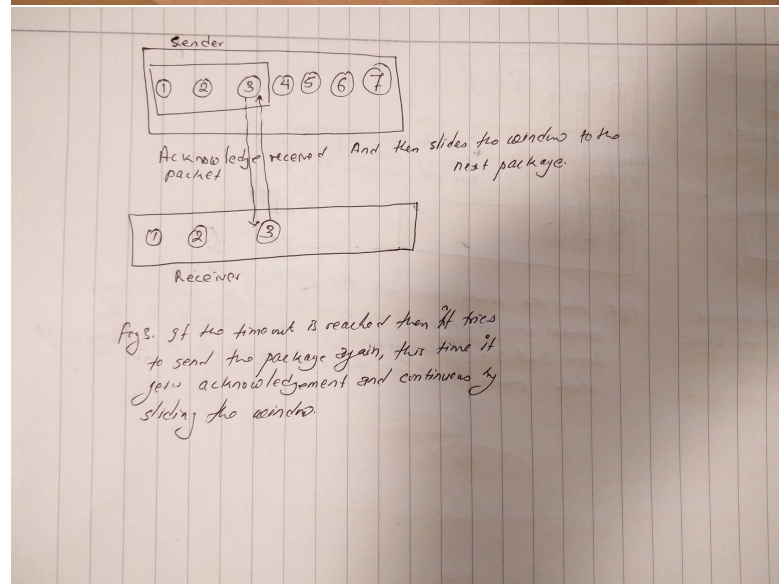 Sender
1 2 3 4 5 6 7
Acknowledge received And then slides the window to the
packet next package.
1 2 3
Receiver
Fig 3. If the timeout is reached then it tries
to send the package again, this time it
gets acknowledgement and continues by
sliding the window.